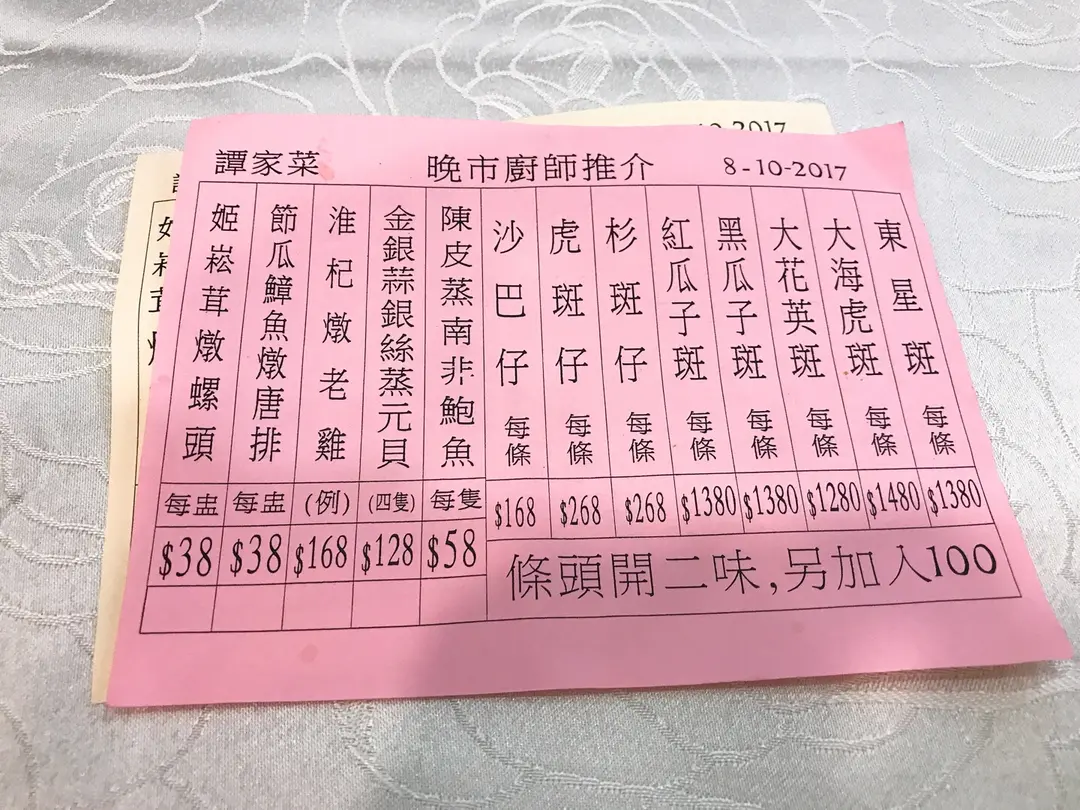 譚家菜 晚市廚師推介 8-10-2017
東星斑 每條 $1380
大海虎斑 每條 $1480
大花英斑 每條 $1280
黑瓜子斑 每條 $1380
紅瓜子斑 每條 $1380
杉斑仔 每條 $268
虎斑仔 每條 $268
沙巴仔 每條 $168
陳皮蒸南非鮑魚 每隻 $58
金銀蒜銀絲蒸元貝 (四隻) $128
淮杞燉老雞 (例) $168
節瓜鱆魚燉唐排 每盅 $38
姬崧茸燉螺頭 每盅 $38
條頭開二味,另加入100
2017